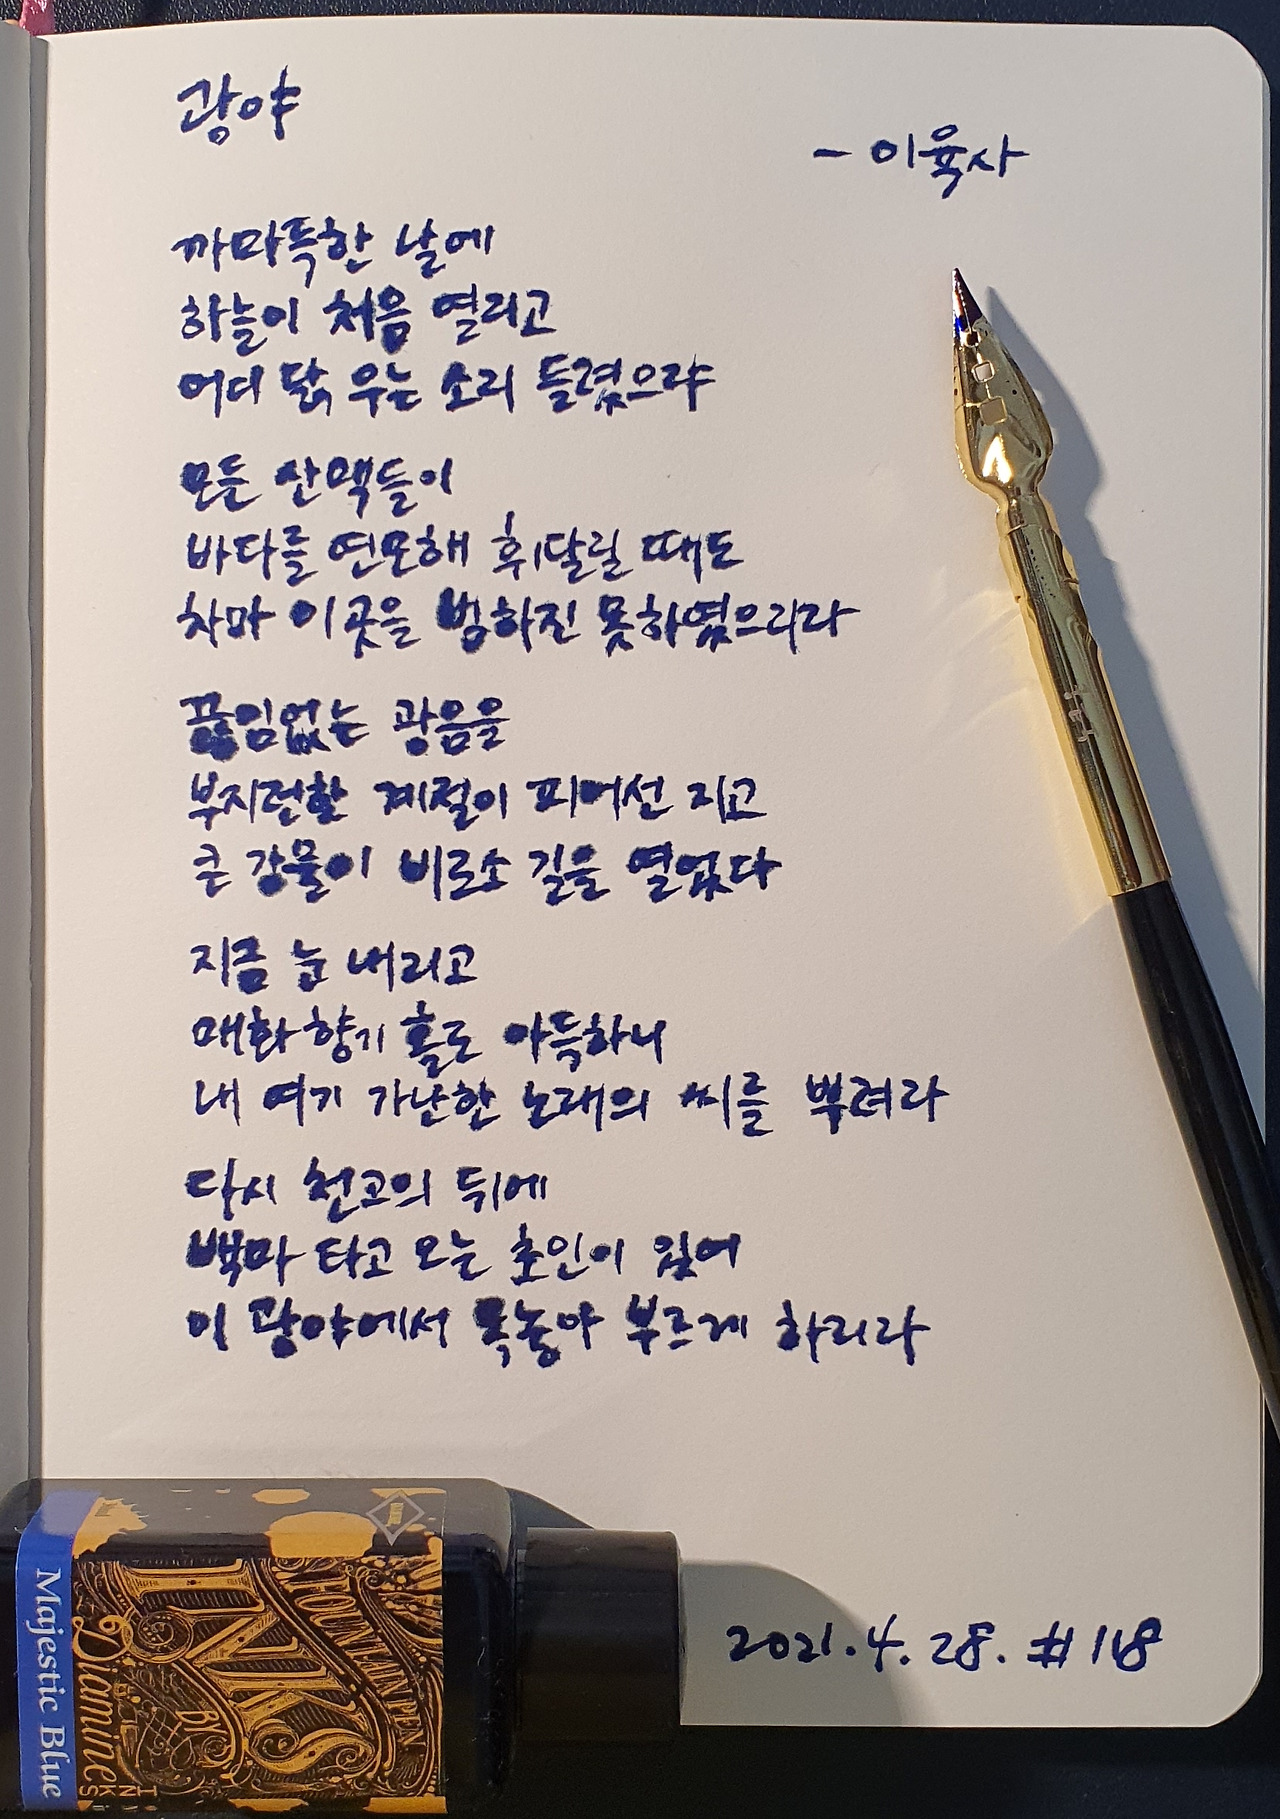 광야
- 이육사
까마득한 날에
하늘이 처음 열리고
어디 닭 우는 소리 들렸으랴
모든 산맥들이
바다를 연모해 휘달릴 때도
차마 이곳을 범하진 못하였으리라
끊임없는 광음을
부지런한 계절이 피어선 지고
큰 강물이 비로소 길을 열었다
지금 눈 내리고
매화 향기 홀로 아득하니
내 여기 가난한 노래의 씨를 뿌려라
다시 천고의 뒤에
백마 타고 오는 초인이 있어
이 광야에서 목놓아 부르게 하리라
2021.4.28. #118
FOUNTAIN PEN
INKS
BY
Diamine
INKS
Majestic Blue